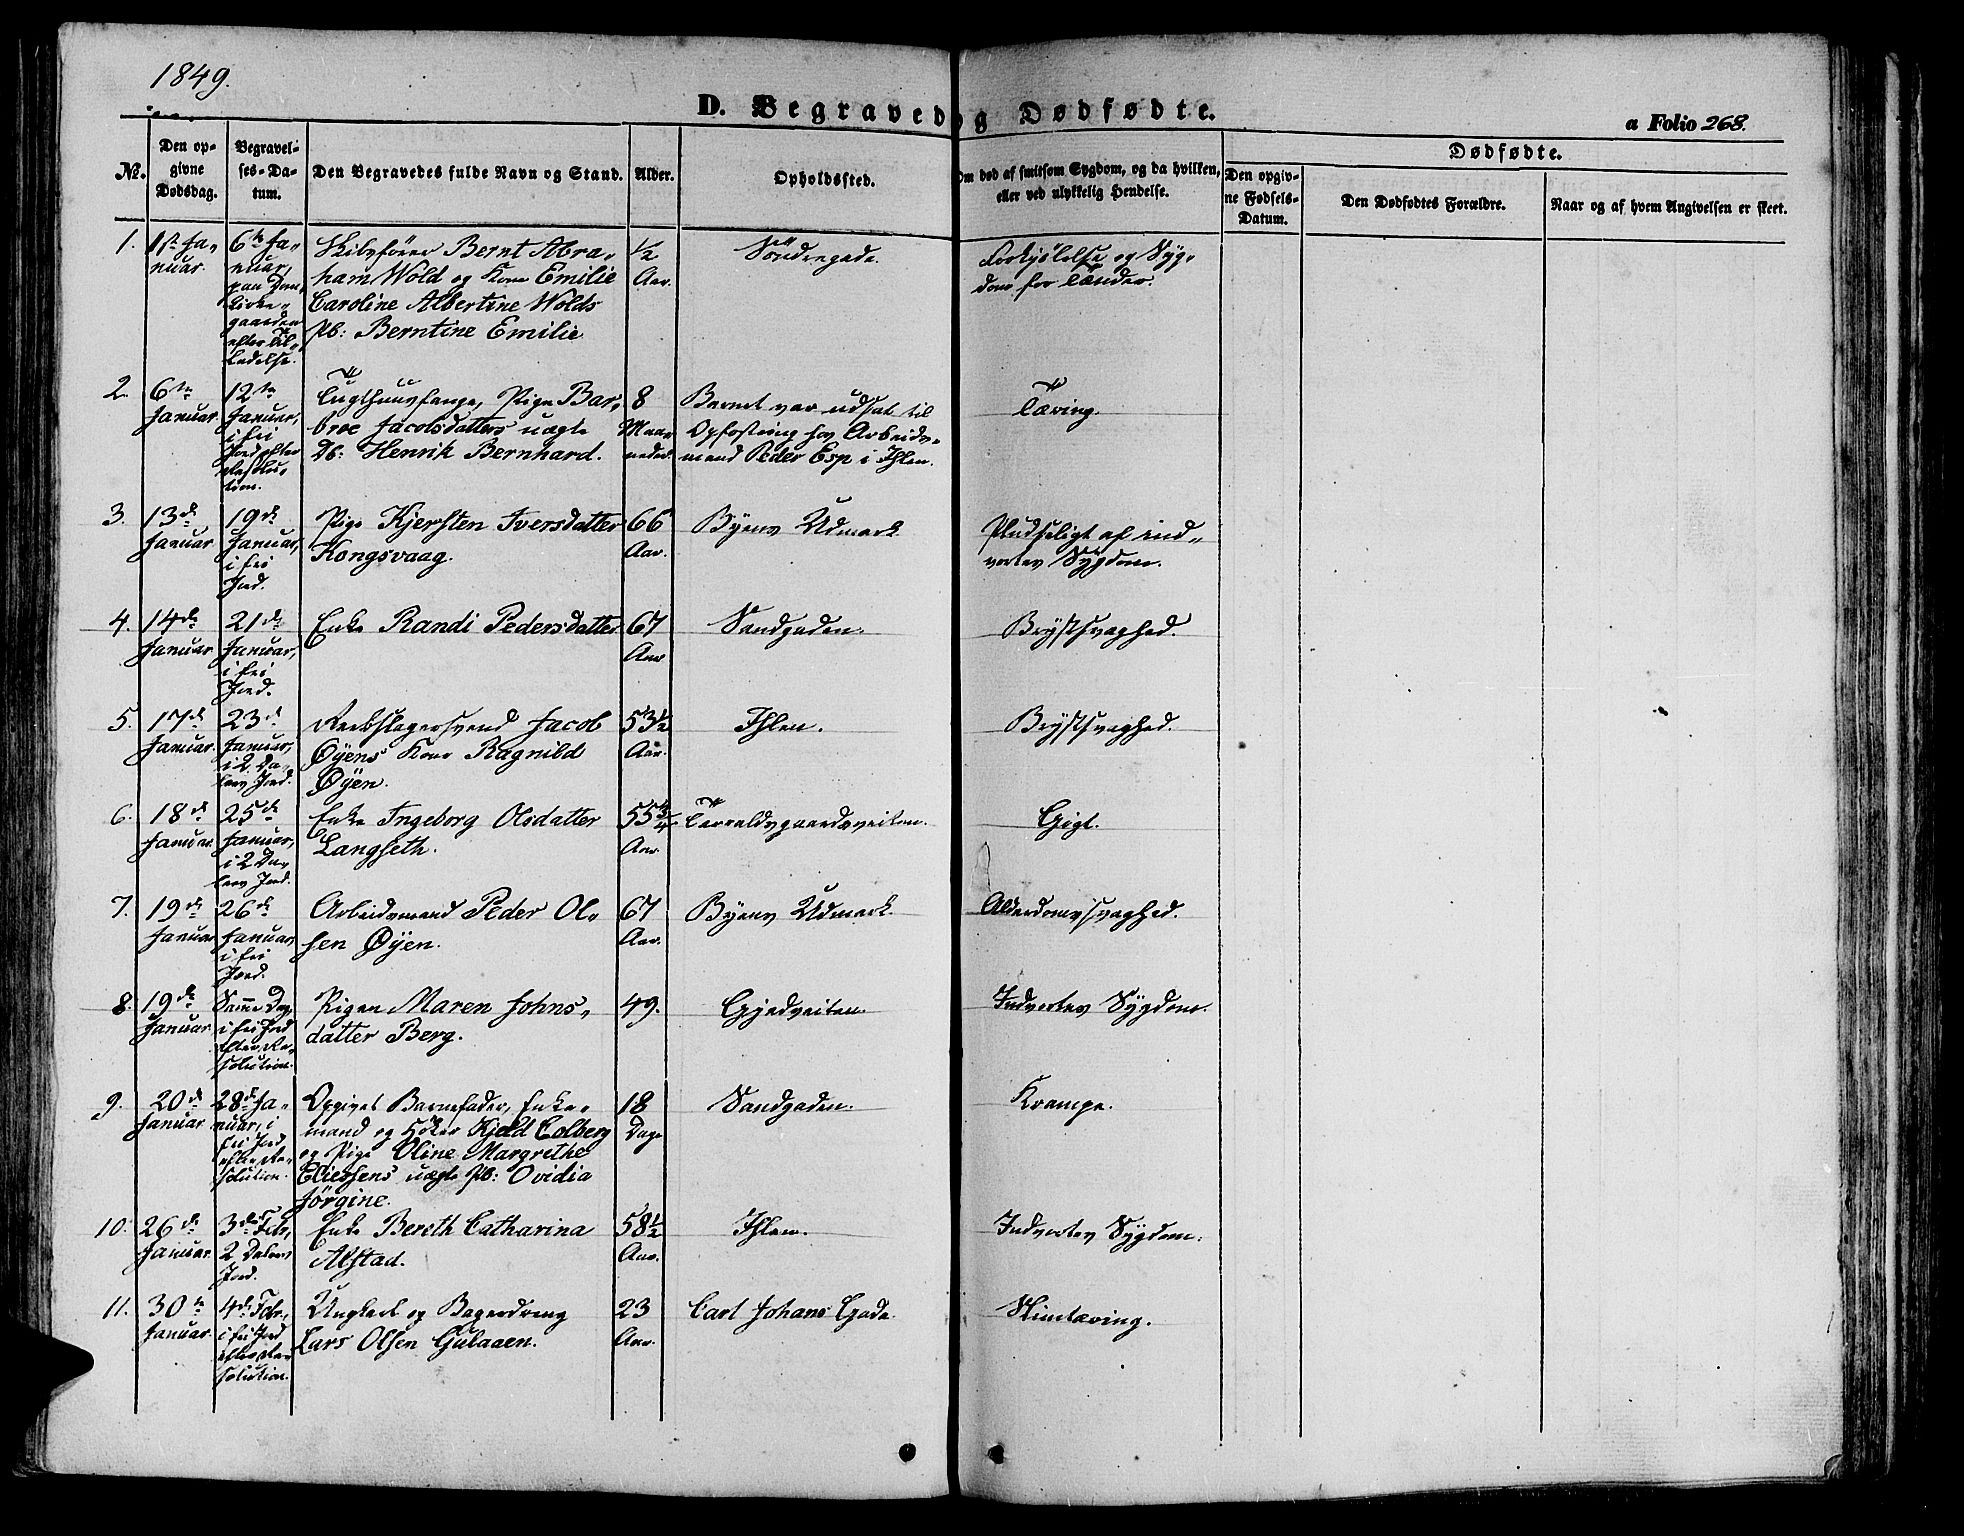 1849.
D. Begravede og Dødfødte.
a Folio 268.
No.
Den op-
givne
Dødsdag.
Begravel-
ses-Da-
tum.
Den Begravedes fulde Navn og Stand.
Alder.
Opholdssted.
Om død af smitsom Sygdom, og da hvilken,
eller ved ulykkelig Hendelse.
Dødfødte.
Den opgiv-
ne Fødsels-
Datum.
Den Dødfødtes Forældre.
Naar og af hvem Angivelsen er skeet.
1.
1ste Ja-
nuar.
6te Ja-
nuar,
paa Dom-
kirke-
gaarden
efter Til-
ladelse.
Skibsförer Bernt Abra-
ham Wold og Kone Emilie
Caroline Albertine Wolds
Pb: Berntine Emilie
1/2
Aar.
Söndregade.
Forkjölelse og Syg-
dom for Tænder.
2.
6te
Januar.
12te
Januar,
i fri
Jord efter
Resolu-
tion.
Tugthuusfange, Pige Bar-
broe Jacobsdatters uægte
Db: Henrik Bernhard.
8
Maa-
neder.
Barnet var udsat til
Opfostring hos Arbeids-
mand Peder Esp i Ihlen.
Tæring.
3.
13de
Januar
19de
Januar,
i fri
Jord.
Pige Kjersten Iversdatter
Kongsvaag.
66
Aar.
Byens Udmark
Pludseligt af ind-
vortes Sygdom.
4.
14de
Januar
21de
Januar,
i fri
Jord.
Enke Randi Pedersdatter
67
Aar
Sandgaden.
Brystsvaghed.
5.
17de
Januar.
23de
Januar,
i 2 Da-
lers Jord.
Reebslagersvend Jacob
Øyens Kone Ragnild
Øyen.
53 1/2
Aar.
Ihlen.
Brystsvaghed.
6.
18de
Januar.
25de
Januar,
i 2 Da-
lers Jord.
Enke Ingeborg Olsdatter
Langseth.
55 3/4
Aar.
Tarraldsgaardsveiten.
Gigt.
7.
19de
Januar
26de
Januar,
i fri
Jord.
Arbeidsmand Peder Ol-
sen Øyen.
67
Aar.
Byens Udmark.
Alderdomssvaghed.
8.
19de
Januar
Samme Dag,
i fri Jord
efter Re-
solution.
Pigen Maren Johns-
datter Berg.
49.
Gjedveiten.
Indvortes Sygdom.
9.
20de
Januar
28de Ja-
nuar, i
fri Jord
efter Re-
solution.
Opgivet Barnefader, Enke-
mand og Höker Kjeld Colberg
og Pige Oline Margrethe
Eliessens uægte Pb: Ovidia
Jörgine.
18
Dage
Sandgaden.
Krampe.
10.
26de
Januar.
3de Febr,
2 Dalers
Jord.
Enke Bereth Catharina
Alstad.
58 1/2
Aar.
Ihlen.
Indvortes Sygdom.
11.
30te
Januar.
4de Febr.,
i fri Jord
efter Re-
solution.
Ungkarl og Bagerdreng
Lars Olsen Gulaaen.
23
Aar.
Carl Johans Gade.
Slimtæring.